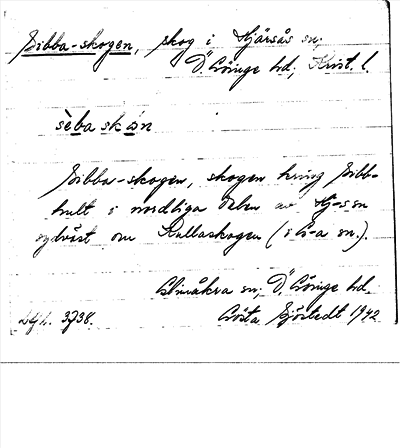 Sibba-skogen, skog i Hjärsås sn;
Ö. Göinge hd; Krist. l.
sèba skón
Sibba-skogen, skogen kring Sibb-
hult i nordliga delen av Hj-s sn
sydväst om Kullaskogen (i G-a sn.).
Glimåkra sn; Ö. Göinge hd.
3738. Gösta Sjöstedt 1942